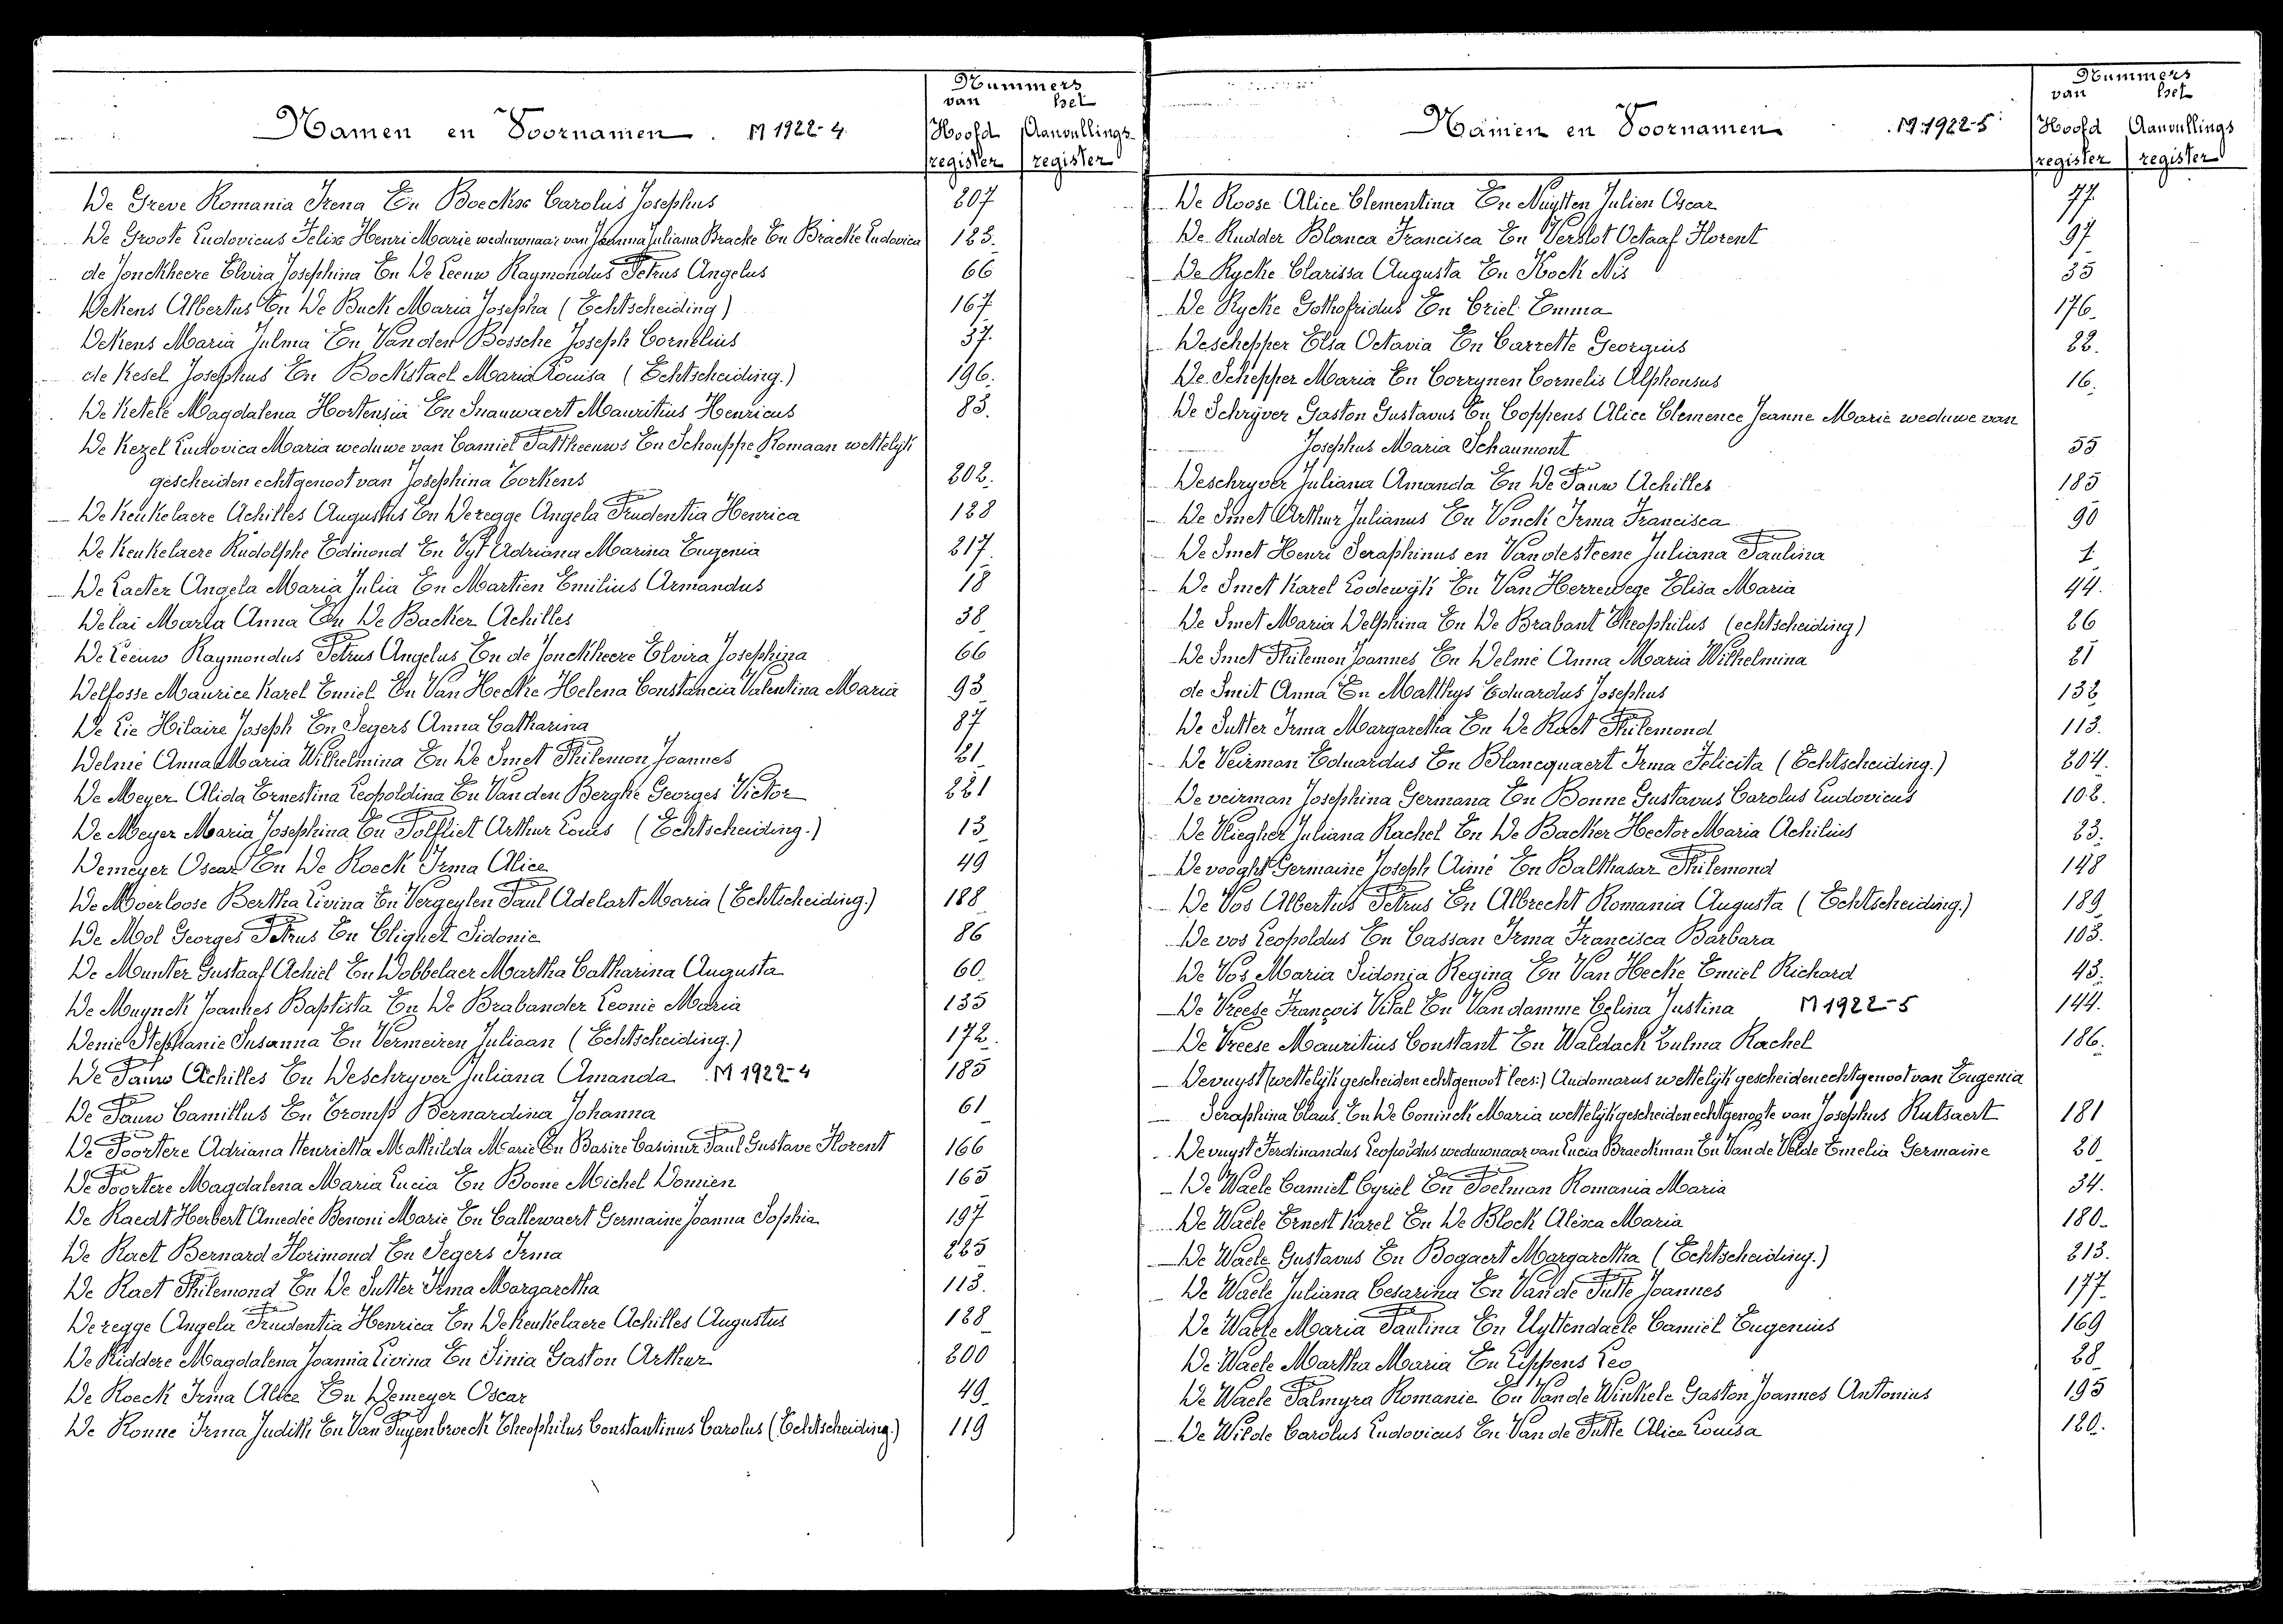 Namen en Voornamen. M 1922-4.
Nummers
van het
Hoofd Aanvullings-
register register
De Greve Romania Irena En Boeckx Carolus Josephus 207
De Groote Ludovicus Felix Henri Marie weduwnaar van Joanna Juliana Bracke En Bracke Ludovica 123.
de Jonckheere Elvira Josephina En De Leeuw Raymondus Petrus Angelus 66
Dekens Albertus En De Buck Maria Josepha (Echtscheiding) 167
Dekens Maria Julma En Van den Bossche Joseph Cornelius 37.
de Kesel Josephus En Bockstael Maria Louisa (Echtscheiding.) 196.
De Ketele Magdalena Hortensia En Snauwaert Mauritius Henricus 83.
De Kezel Ludovica Maria weduwe van Camiel Pattheeuws En Schouppe Romaan wettelijk
gescheiden echtgenoot van Josephina Torkens 202.
De Keukelaere Achilles Augustus En Deregge Angela Prudentia Henrica 128
De Keukelaere Rudolphe Edmond En Vyt Adriana Marina Eugenia 217.
De Laeter Angela Maria Julia En Martien Emilius Armandus 18
Delai Maria Anna En De Backer Achilles 38
De Leeuw Raymondus Petrus Angelus En de Jonckheere Elvira Josephina 66
Delfosse Maurice Karel Emiel En Van Hecke Helena Constancia Valentina Maria 93
De Lie Hilaire Joseph En Segers Anna Catharina 87
Delmé Anna Maria Wilhelmina En De Smet Philemon Joannes 21
De Meyer Alida Ernestina Leopoldina En Van den Berghe Georges Victor 221
De Meyer Maria Josephina En Polfliet Arthur Louis (Echtscheiding.) 13
Demeyer Oscar En De Roeck Irma Alice 49
De Moerloose Bertha Livina En Vergeylen Paul Adelart Maria (Echtscheiding.) 188
De Mol Georges Petrus En Clighet Sidonie 86
De Munter Gustaaf Achiel En Dobbelaer Martha Catharina Augusta 60.
De Muynck Joannes Baptista En De Brabander Leonie Maria 135
Denie Stephanie Susanna En Vermeiren Juliaan (Echtscheiding.) 172.
De Pauw Achilles En Deschryver Juliana Amanda M 1922-4 185
De Pauw Camillus En Tromp Bernardina Johanna 61
De Poortere Adriana Henrietta Mathilda Marie En Basire Casimir Paul Gustave Florent 166
De Poortere Magdalena Maria Lucia En Boone Michel Domien 165
De Raedt Herbert Amedée Benoni Marie En Callewaert Germaine Joanna Sophia 197
De Raet Bernard Florimond En Segers Irma 225
De Raet Philemond En De Sutter Irma Margaretha 113.
Deregge Angela Prudentia Henrica En De Keukelaere Achilles Augustus 128
De Riddere Magdalena Joanna Livina En Sinia Gaston Arthur 200
De Roeck Irma Alice En Demeyer Oscar 49
De Ronne Irma Judith En Van Puyenbroeck Theophilus Constantinus Carolus (Echtscheiding.) 119
Namen en Voornamen M 1922-5
Nummers
van het
Hoofd Aanvullings
register register
De Roose Alice Clementina En Nuytten Julien Oscar 77
De Rudder Blanca Francisca En Verslot Octaaf Florent 97
De Rycke Clarissa Augusta En Kock Nis 35
De Rycke Gothofridus En Criel Emma 176.
Deschepper Elsa Octavia En Carrette Georgius 22.
De Schepper Maria En Corrynen Cornelis Alphonsus 16.
De Schryver Gaston Gustavus En Coppens Alice Clemence Jeanne Marie weduwe van
Josephus Maria Schaumont 55
Deschryver Juliana Amanda En De Pauw Achilles 185
De Smet Arthur Julianus En Vonck Irma Francisca 90
De Smet Henri Seraphinus en Vandesteene Juliana Paulina 1
De Smet Karel Lodewijk En Van Herrewege Elisa Maria 44.
De Smet Maria Delphina En De Brabant Theophilus (echtscheiding) 26
De Smet Philemon Joannes En Delmé Anna Maria Wilhelmina 21
de Smit Anna En Matthys Eduardus Josephus 132
De Sutter Irma Margaretha En De Raet Philemond 113.
De Veirman Eduardus En Blancquaert Irma Felicita (Echtscheiding.) 204.
De veirman Josephina Germana En Bonne Gustavus Carolus Ludovicus 102.
De Vliegher Juliana Rachel En De Backer Hector Maria Achilius 23.
De vooght Germaine Joseph Aimé En Balthasar Philemond 148
De Vos Albertus Petrus En Albrecht Romania Augusta (Echtscheiding.) 189
De vos Leopoldus En Cassan Irma Francisca Barbara 103.
De Vos Maria Sidonia Regina En Van Hecke Emiel Richard 43.
De Vreese François Vital En Vandamme Celina Justina M 1922-5 144.
De Vreese Mauritius Constant En Waldack Zulma Rachel 186.
Devuyst (wettelijk gescheiden echtgenoot lees:) Audomarus wettelijk gescheiden echtgenoot van Eugenia
Seraphina Claus. En De Coninck Maria wettelijk gescheiden echtgenoote van Josephus Rutsaert 181
Devuyst Ferdinandus Leopoldus weduwnaar van Lucia Braeckman En Van de Velde Emelia Germaine 20
De Waele Camiel Cyriel En Poelman Romania Maria 34.
De Waele Ernest Karel En De Block Alixa Maria 180.
De Waele Gustavus En Bogaert Margaretha (Echtscheiding.) 213.
De Waele Juliana Cesarina En Van de Putte Joannes 177
De Waele Maria Paulina En Uyttendaele Camiel Eugenius 169
De Waele Martha Maria En Lippens Leo 28
De Waele Palmyra Romanie En Van de Winkele Gaston Joannes Antonius 195
De Wilde Carolus Ludovicus En Van de Putte Alice Louisa 120.